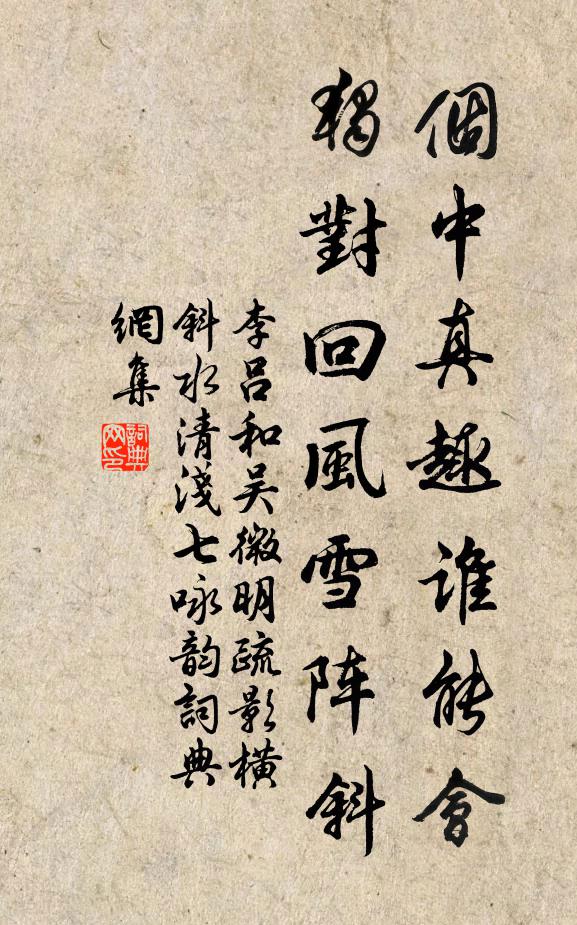 個中真趣誰能會
獨對回風雪阵斜
李呂和吴微明疏影橫
斜水清淺七咏韵詞典
網集
詞典
网印